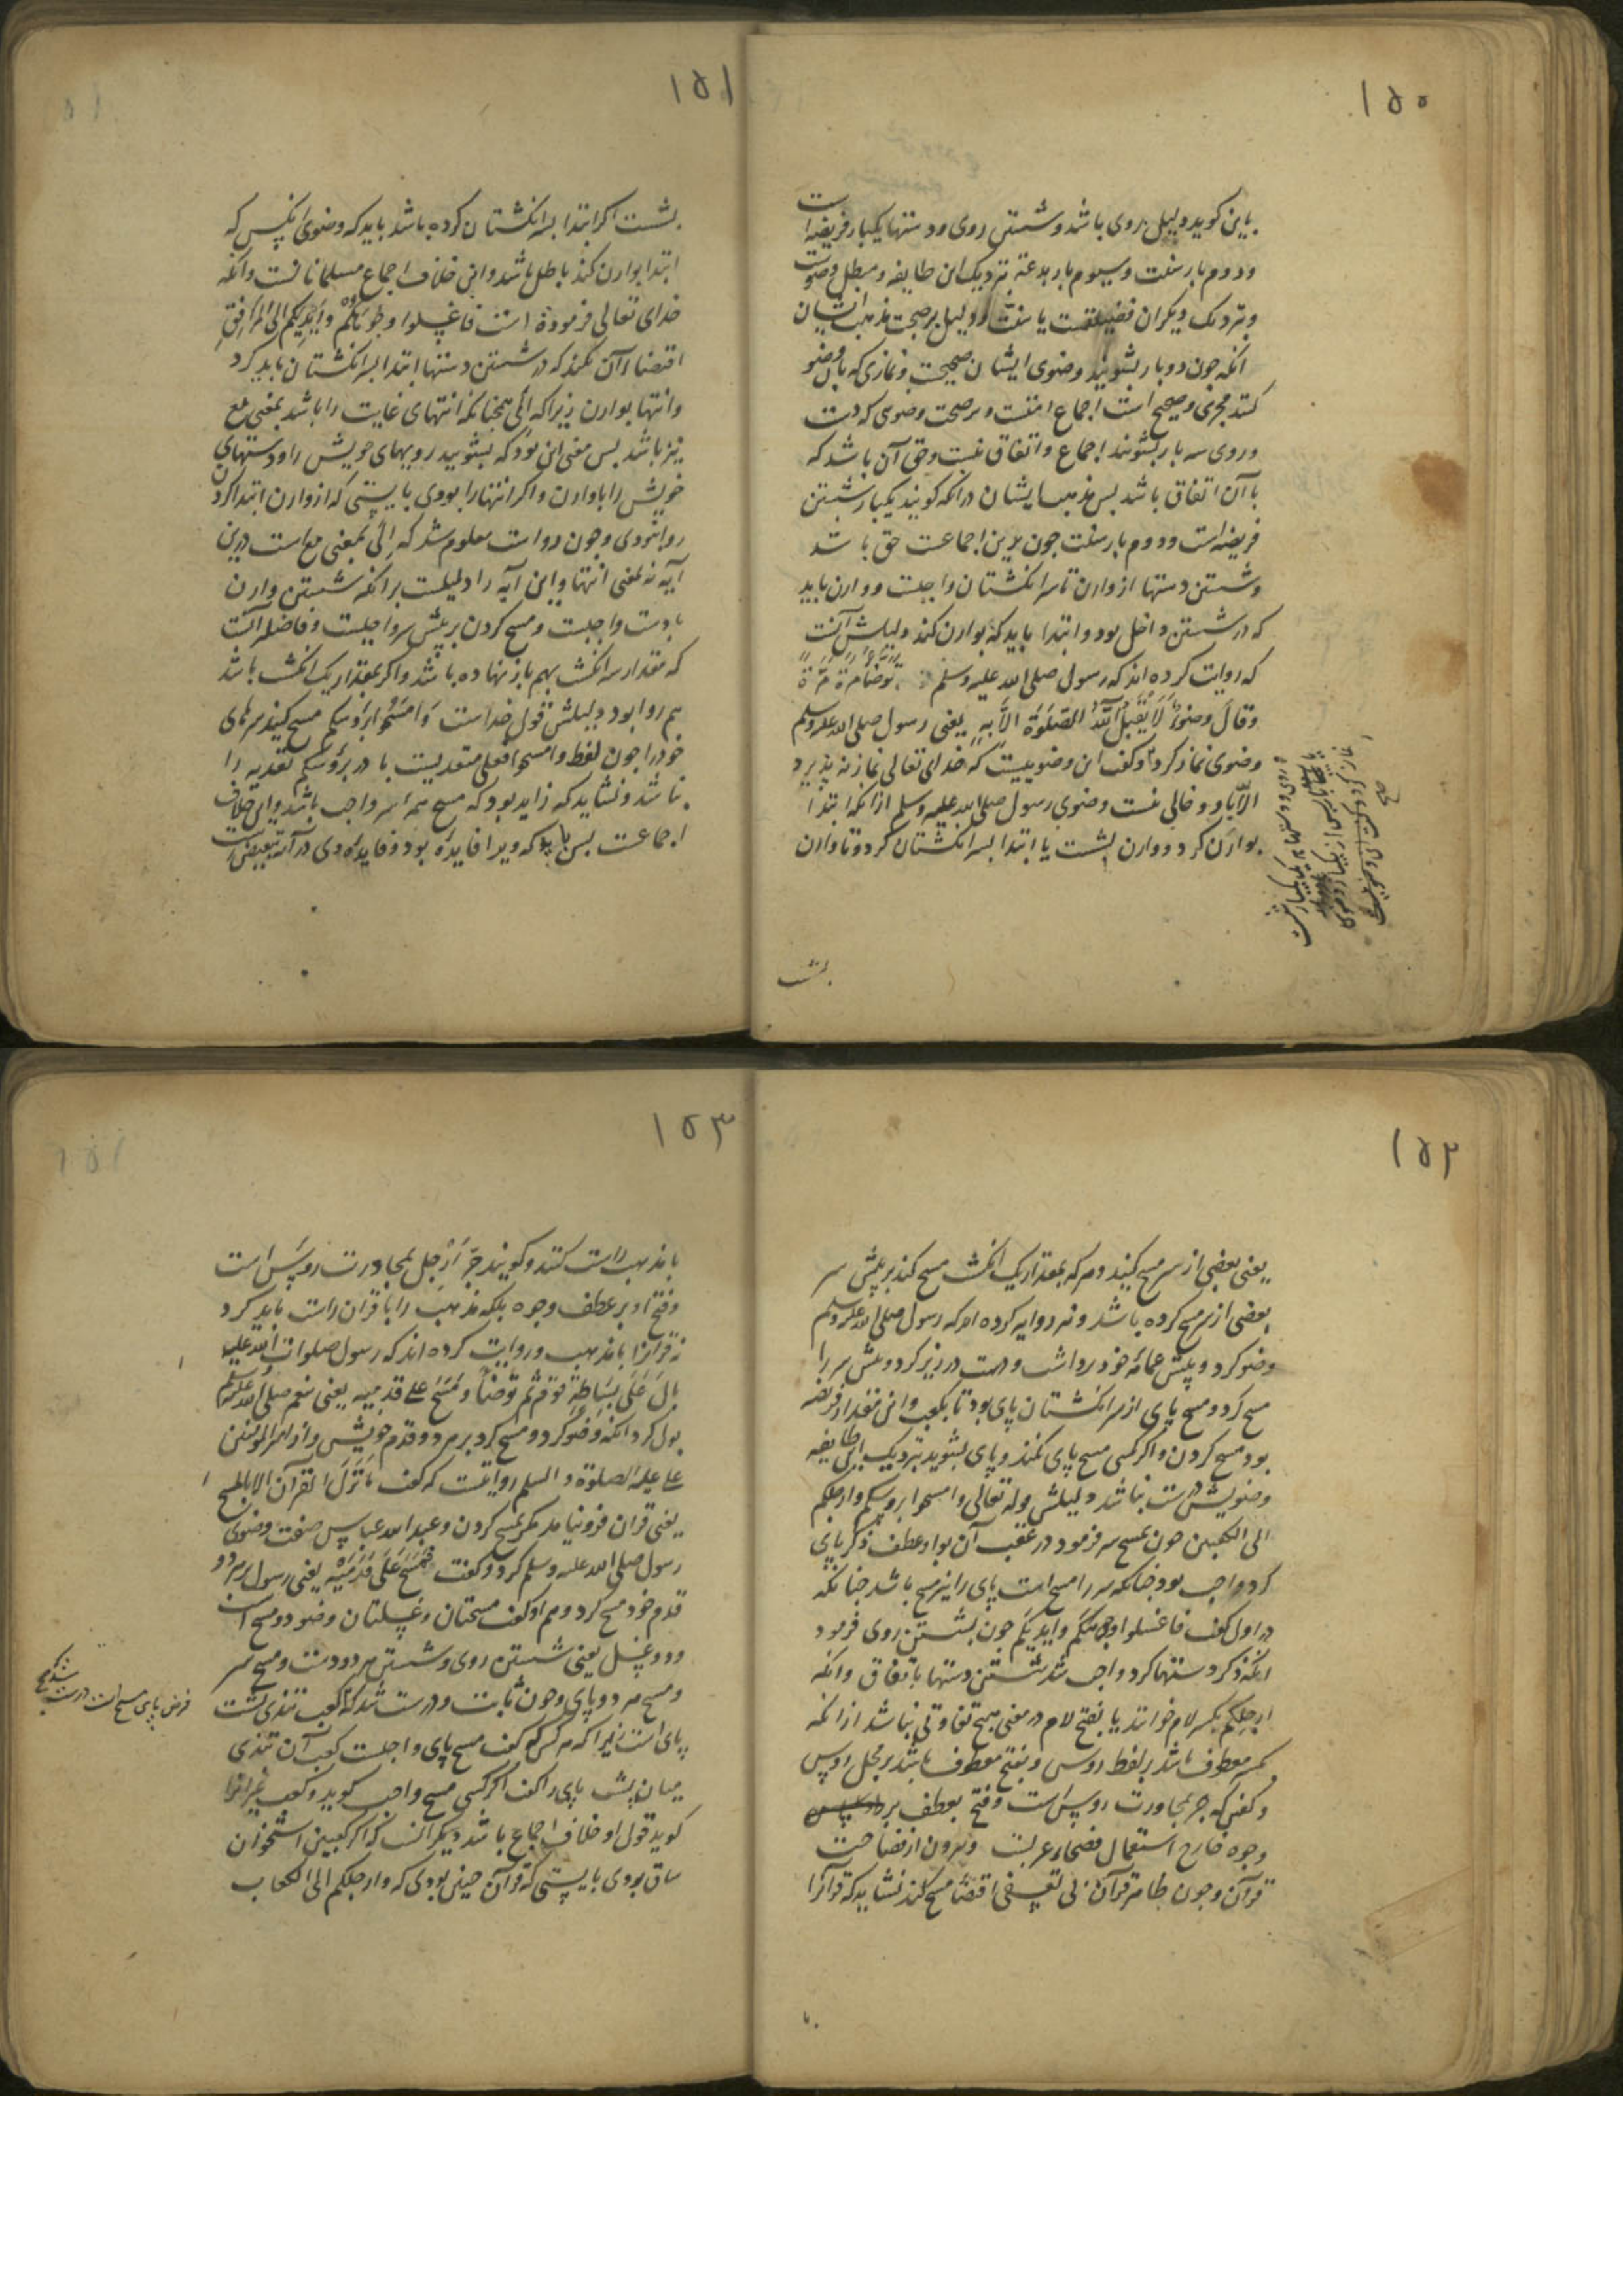 ۱۵۰
باین کوید دلیل بروی باشد و شستن روی و دستها یکبار فریضه است
و دوم بار سنت و سیوم بار بدعة نزدیک این طایفه و مبطل وضوست
و نزدیک دیکران فضیلتست یا سنت و دلیل بر صحت مذهب ایشان
انکه جون دو بار بشویند وضوی ایشان صحیحست و نمازی که بآن وضو
کنند مجزی و صحیح است اجماع امتست و بر صحت وضوی که دست
و روی سه بار بشویند اجماع و اتفاق نیست و حق آن باشد که
با آن اتفاق باشد بس مذهب ایشان در انکه کویند یکبار شستن
فریضه است و دوم بار سنت جون برین اجماعست حق باشد
و شستن دستها از وارن تا سر انکشتان واجبست و وارن باید
که در شستن داخل بود و ابتدا باید که بوارن کند دلیلش آنست
که روایت کرده اند که رسول صلی الله علیه وسلم توضأ مرة مرة
وقال وضوء لا يقبل الله الصلوة الا به یعنی رسول صلی الله علیه وسلم
وضوی نماز کرد و کفت این وضوییست که خدای تعالی نماز نه پذیرد
الا باو و خالی نیست وضوی رسول صلی الله علیه وسلم از انکه ابتدا
بوارن کرد و وارن بشست یا ابتدا بسر انکشتان کرد و تا وارن
و روی و دستها به یکبار شست
نماز کرد و کفت این وضوییست
صح
بشست
۱۵۱
بشست اکر ابتدا بسر انکشتان کرده باشد باید که وضوی انکس که
ابتدا بوارن کند باطل باشد و این خلاف اجماع مسلمانانست و انکه
خدای تعالی فرموده است فاغسلوا وجوهکم وایدیکم الی المرافق
اقتضاء آن نکند که در شستن دستها ابتدا بسر انکشتان باید کرد
و انتها بوارن زیرا که الی همچنانکه انتهای غایت را باشد بمعنی مع
نیز باشد بس معنی این بود که بشویید رویهای خویش را و دستهای
خویش را با وارن و اکر انتها را بودی بایستی که از وارن ابتدا کردن
روا نبودی و جون رواست معلوم شد که الی بمعنی مع است درین
آیه نه بمعنی انتها و این آیه را دلیلست بر انکه شستن وارن
با دست واجبست و مسح کردن بر پیش سر واجبست و فاضلتر آنست
که مقدار سه انکشت بهم باز نهاده باشد و اکر بمقدار یک انکشت باشد
هم روا بود دلیلش قول خداست وامسحوا برؤسکم مسح کنید سرهای
خود را جون لفظ وامسحوا فعلی متعدیست با در برؤسکم تعدیه را
نباشد و نشاید که زاید بود که مسح همه سر واجب باشد و این خلاف
اجماعست بس باید که ویرا فایده بود و فایده وی در آیه تبعیض است
۱۵۲
یعنی بعضی از سر مسح کنید و هر که بمقدار یک انکشت مسح کند بر پیش سر
بعضی از سر مسح کرده باشد و نیز روایه کرده اند که رسول صلی الله علیه وسلم
وضو کرد و پیش عمامه خود برداشت و دست در زیر کرد و پیش سر را
مسح کرد و مسح پای از سر انکشتان پای بود تا بکعب و این مقدار فریضه
بود مسح کردن و اکر کسی مسح پای نکند و پای بشوید نزدیک این طایفه
وضویش درست نباشد دلیلش قوله تعالی وامسحوا برؤسکم وارجلکم
الی الکعبین جون بمسح سر فرمود در عقب آن بواو عطف ذکر پای
کرد واجب بود جنانکه سر را مسح است پای را نیز مسح باشد جنانکه
در اول کفت فاغسلوا وجوهکم وایدیکم جون بشستن روی فرمود
انکه ذکر دستها کرد واجب شد شستن دستها باتفاق و انکه
ارجلکم بکسر لام خوانند یا بفتح لام در معنی هیچ تفاوتی نباشد از انکه
بکسر معطوف باشد بر لفظ رووس و بفتح معطوف باشد بر محل رووس
و کفتن که جر بمجاورت رووس است و فتح بعطف بر
وجوه خارج استعمال فصحاء عربست و بیرون از فصاحت
قرآن و جون ظاهر قرآن بی تعسفی اقتضاء مسح کند نشاید که قرآنرا
با
۱۵۳
با مذهب راست کنند و کویند جر ارجل بمجاورت رووس است
و فتح او بر عطف وجوه بلکه مذهب را با قرآن راست باید کرد
نه قرآنرا با مذهب و روایت کرده اند که رسول صلوات الله علیه
بال علی سباطة قوم ثم توضأ ومسح علی قدمیه یعنی پیغمبر صلی الله علیه وسلم
بول کرد انکه وضو کرد و مسح کرد بر هر دو قدم خویش و از امیرالمومنین
علی علیه الصلوة و السلم روایتست که کفت ما نزل القرآن الا بالمسح
یعنی قرآن فرو نیامد مکر بمسح کردن و عبد الله عباس صفت وضوی
رسول صلی الله علیه وسلم کرد و کفت فمسح علی قدمیه یعنی رسول بر هر دو
قدم خود مسح کرد و هم او کفت مسحتان وغسلتان وضو دو مسح است
و دو غسل یعنی شستن روی و شستن هر دو دست و مسح سر
و مسح هر دو پای و جون ثابت و درست شد که کعب تندی پشت
پای است زیرا که هر کس که کفت مسح پای واجبست کعب آن تندی
میان پشت پای را کفت اکر کسی مسح واجب کوید و کعب غیر انرا
کوید قول او خلاف اجماع باشد دیکر آنست که اکر کعبین استخوان
ساق بودی بایستی که قرآن جنین بودی که وارجلکم الی الکعاب
فرض پای مسح است درست شد که صح